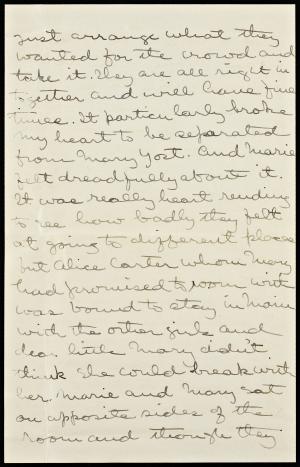 just arrange what they
wanted for the crowd and
take it. They are all right in
together and will have fine
times. It particularly broke
my heart to be separated
from Mary Yost. And Marie
felt dreadfully about it.
It was really heart rending
to see how badly they felt
at going to different places
but Alice Carter whom Mary
had promised to room with
was bound to stay in Main
with the other girls and
dear little Mary didn't
think she could break with
her. Marie and Mary sat
on opposite sides of the
room and though they